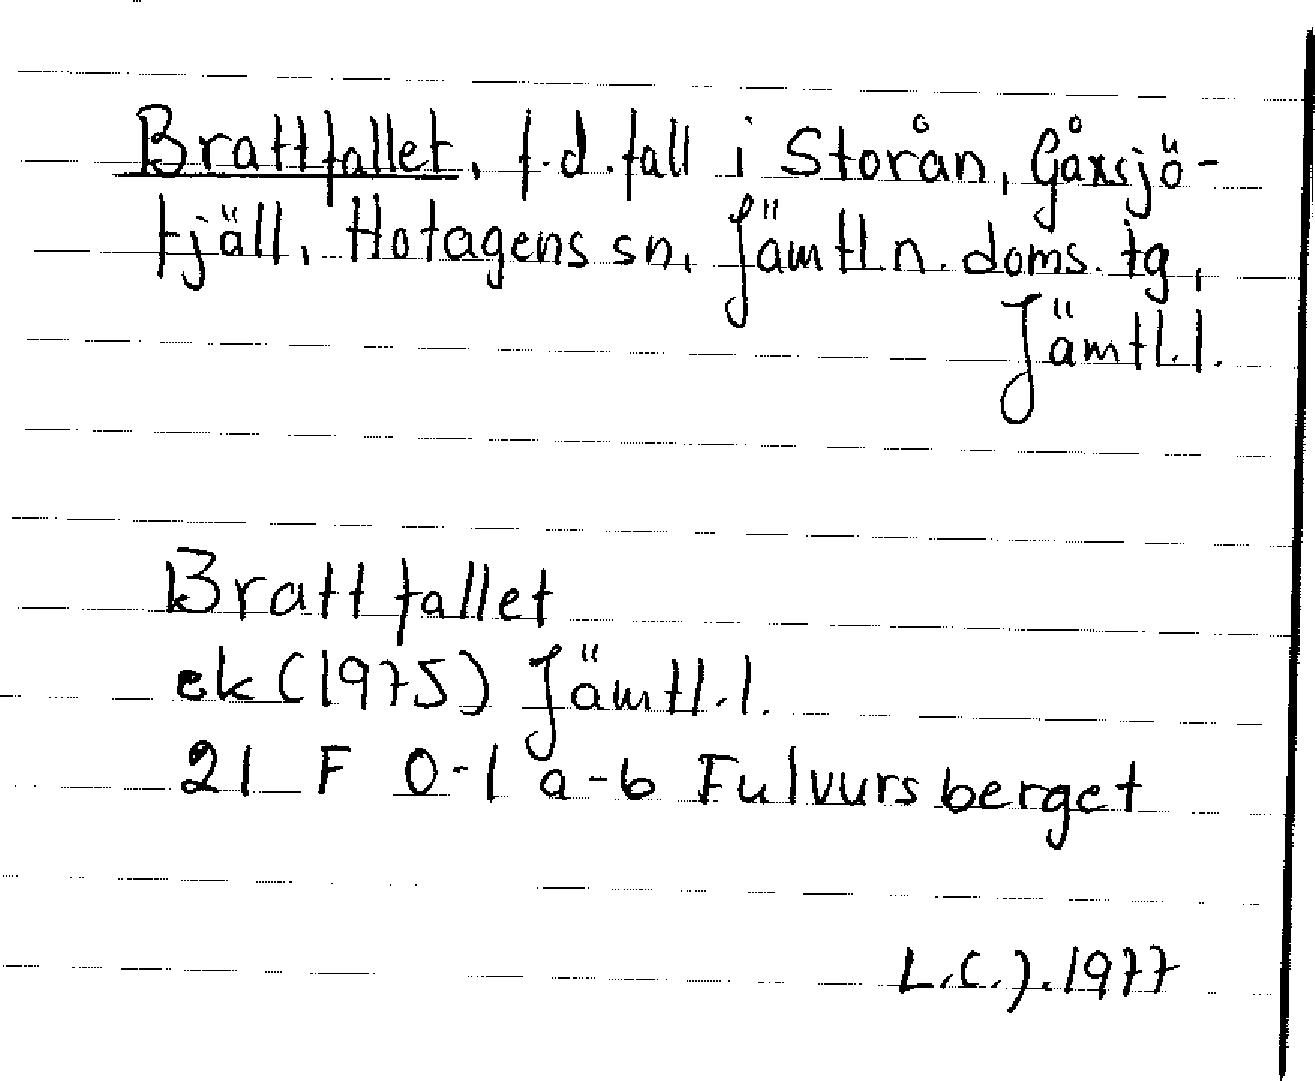 Brattfallet, f.d. fall i Storån, Gåxsjö-
fjäll, Hotagens sn, Jämtl. n. doms. tg,
Jämtl. l.
Brattfallet
ek (1975) Jämtl. l.
21 F 0-1 a-b Fulvursberget
L.C.J. 1977